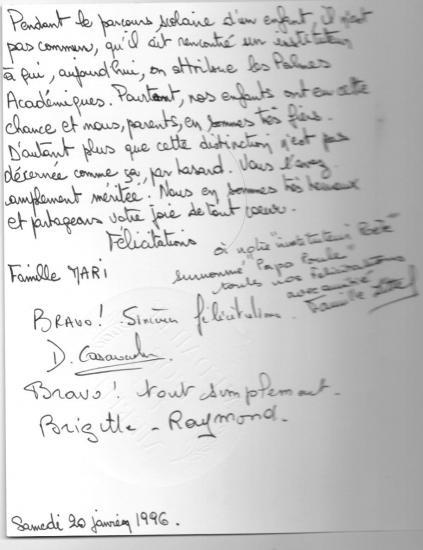 Pendant le parcours scolaire d'un enfant, il n'est
pas commun, qu'il ait rencontré un instituteur
à qui, aujourd'hui, on attribue les Palmes
Académiques. Pourtant, nos enfants ont eu cette
chance et nous, parents, en sommes très fiers.
D'autant plus que cette distinction n'est pas
décernée comme ça, par hasard. Vous l'avez
amplement méritée. Nous en sommes très heureux
et partageons votre joie de tout coeur.
Félicitations
Famille MARI
à notre "instituteur Poète"
surnommé "Papa Poule"
toutes nos félicitations
avec amitié
Famille
BRAVO! Sincères félicitations.
D.
Bravo! tout simplement.
Brigitte - Raymond.
Samedi 20 janvier 1996.